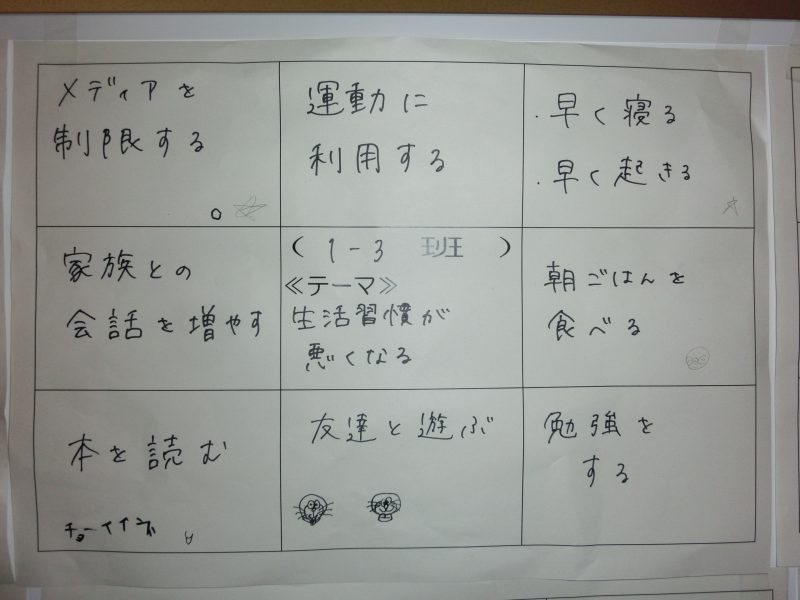 メディアを
制限する
運動に
利用する
・早く寝る
・早く起きる
家族との
会話を増やす
( 1-3 班 )
≪テーマ≫
生活習慣が
悪くなる
朝ごはんを
食べる
本を読む
友達と遊ぶ
勉強を
する